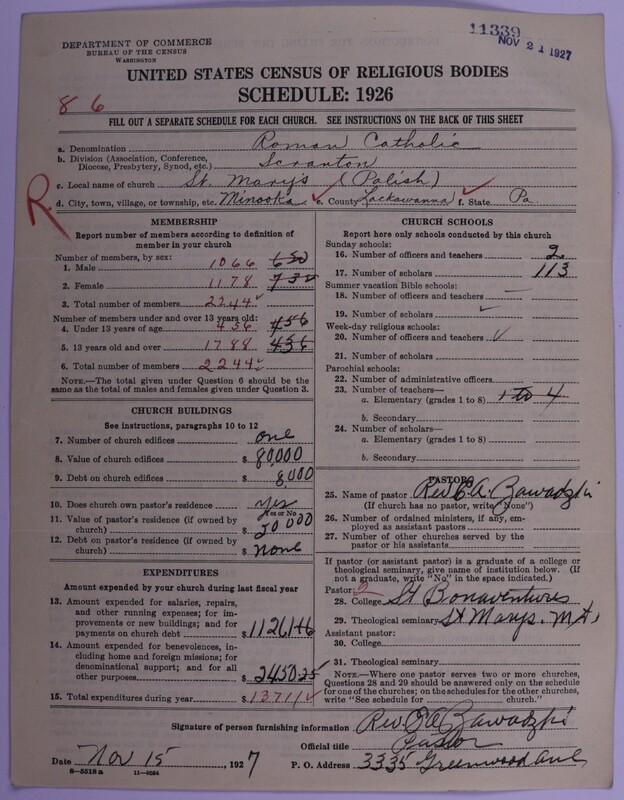 11339
NOV 21 1927
DEPARTMENT OF COMMERCE
BUREAU OF THE CENSUS
WASHINGTON
UNITED STATES CENSUS OF RELIGIOUS BODIES
SCHEDULE: 1926
86
FILL OUT A SEPARATE SCHEDULE FOR EACH CHURCH. SEE INSTRUCTIONS ON THE BACK OF THIS SHEET
a. Denomination Roman Catholic
b. Division (Association, Conference, Diocese, Presbytery, Synod, etc.) Scranton
c. Local name of church St. Mary's (Polish)
R.
d. City, town, village, or township, etc. Minooka e. County Lackawanna f. State Pa
MEMBERSHIP
Report number of members according to definition of
member in your church
Number of members, by sex:
1. Male 1066 650
2. Female 1178 732
3. Total number of members 2244
Number of members under and over 13 years old:
4. Under 13 years of age 456 456
5. 13 years old and over 1788 456
6. Total number of members 2244
NOTE.—The total given under Question 6 should be
the same as the total of males and females given under Question 3.
CHURCH BUILDINGS
See instructions, paragraphs 10 to 12
7. Number of church edifices one
8. Value of church edifices $ 80,000
9. Debt on church edifices $ 8,000
10. Does church own pastor's residence yes
Yes or No
11. Value of pastor's residence (if owned by
church) $ 20 000
12. Debt on pastor's residence (if owned by
church) $ none
EXPENDITURES
Amount expended by your church during last fiscal year
13. Amount expended for salaries, repairs,
and other running expenses; for im-
provements or new buildings; and for
payments on church debt $ 1126146
14. Amount expended for benevolences,
including home and foreign missions; for
denominational support; and for all
other purposes $ 245025
15. Total expenditures during year $ 13711
CHURCH SCHOOLS
Report here only schools conducted by this church
Sunday schools:
16. Number of officers and teachers 2
17. Number of scholars 113
Summer vacation Bible schools:
18. Number of officers and teachers —
19. Number of scholars
Week-day religious schools:
20. Number of officers and teachers
21. Number of scholars
Parochial schools:
22. Number of administrative officers
23. Number of teachers—
a. Elementary (grades 1 to 8) 1 to 4
b. Secondary
24. Number of scholars—
a. Elementary (grades 1 to 8)
b. Secondary
PASTORS
25. Name of pastor Rev. E.A. Zawadzki
(If church has no pastor, write "None")
26. Number of ordained ministers, if any, em-
ployed as assistant pastors
27. Number of other churches served by the
pastor or his assistants
If pastor (or assistant pastor) is a graduate of a college or
theological seminary, give name of institution below. (If
not a graduate, write "No" in the space indicated.)
Pastor: 2
28. College St Bonaventures
29. Theological seminary St Marys.
Assistant pastor:
30. College
31. Theological seminary
NOTE.—Where one pastor serves two or more churches,
Questions 28 and 29 should be answered only on the schedule
for one of the churches; on the schedules for the other churches,
write "See schedule for church."
Signature of person furnishing information Rev. E.A. Zawadzki
Official title Pastor
Date Nov 15, 1927 P. O. Address 3335 Greenwood Ave,
8—5518 a 11—9094